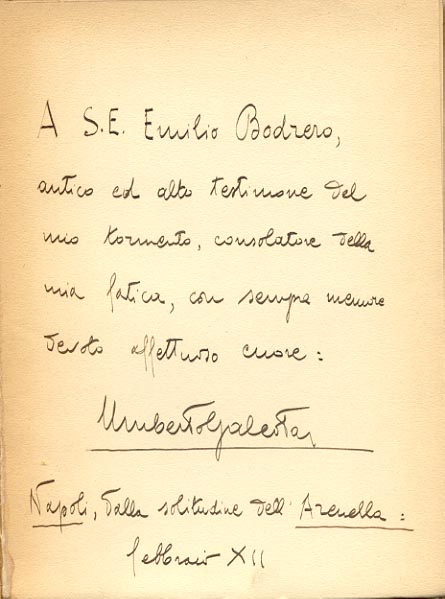 A S.E. Emilio Bodrero,
antico ed alto testimone del
mio tormento, consolatore della
mia fatica, con sempre memore
devoto affettuoso cuore:
Umberto Galeota
Napoli, dalla solitudine dell'Arenella:
febbraio XII